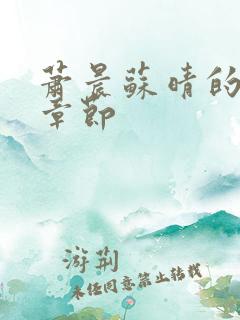 萧晨蘇晴的
章節
游荆
未经同意禁止转载